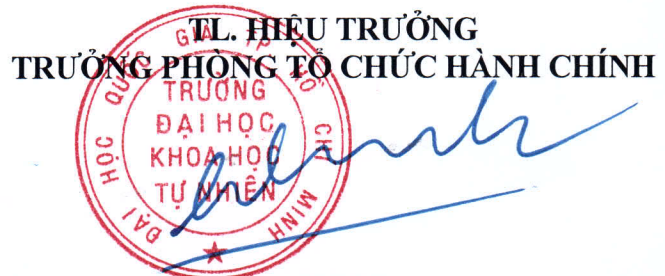 TL. HIỆU TRƯỞNG
TRƯỞNG PHÒNG TỔ CHỨC HÀNH CHÍNH
ĐẠI HỌC QUỐC GIA TP HỒ CHÍ MINH
TRƯỜNG
ĐẠI HỌC
KHOA HỌC
TỰ NHIÊN